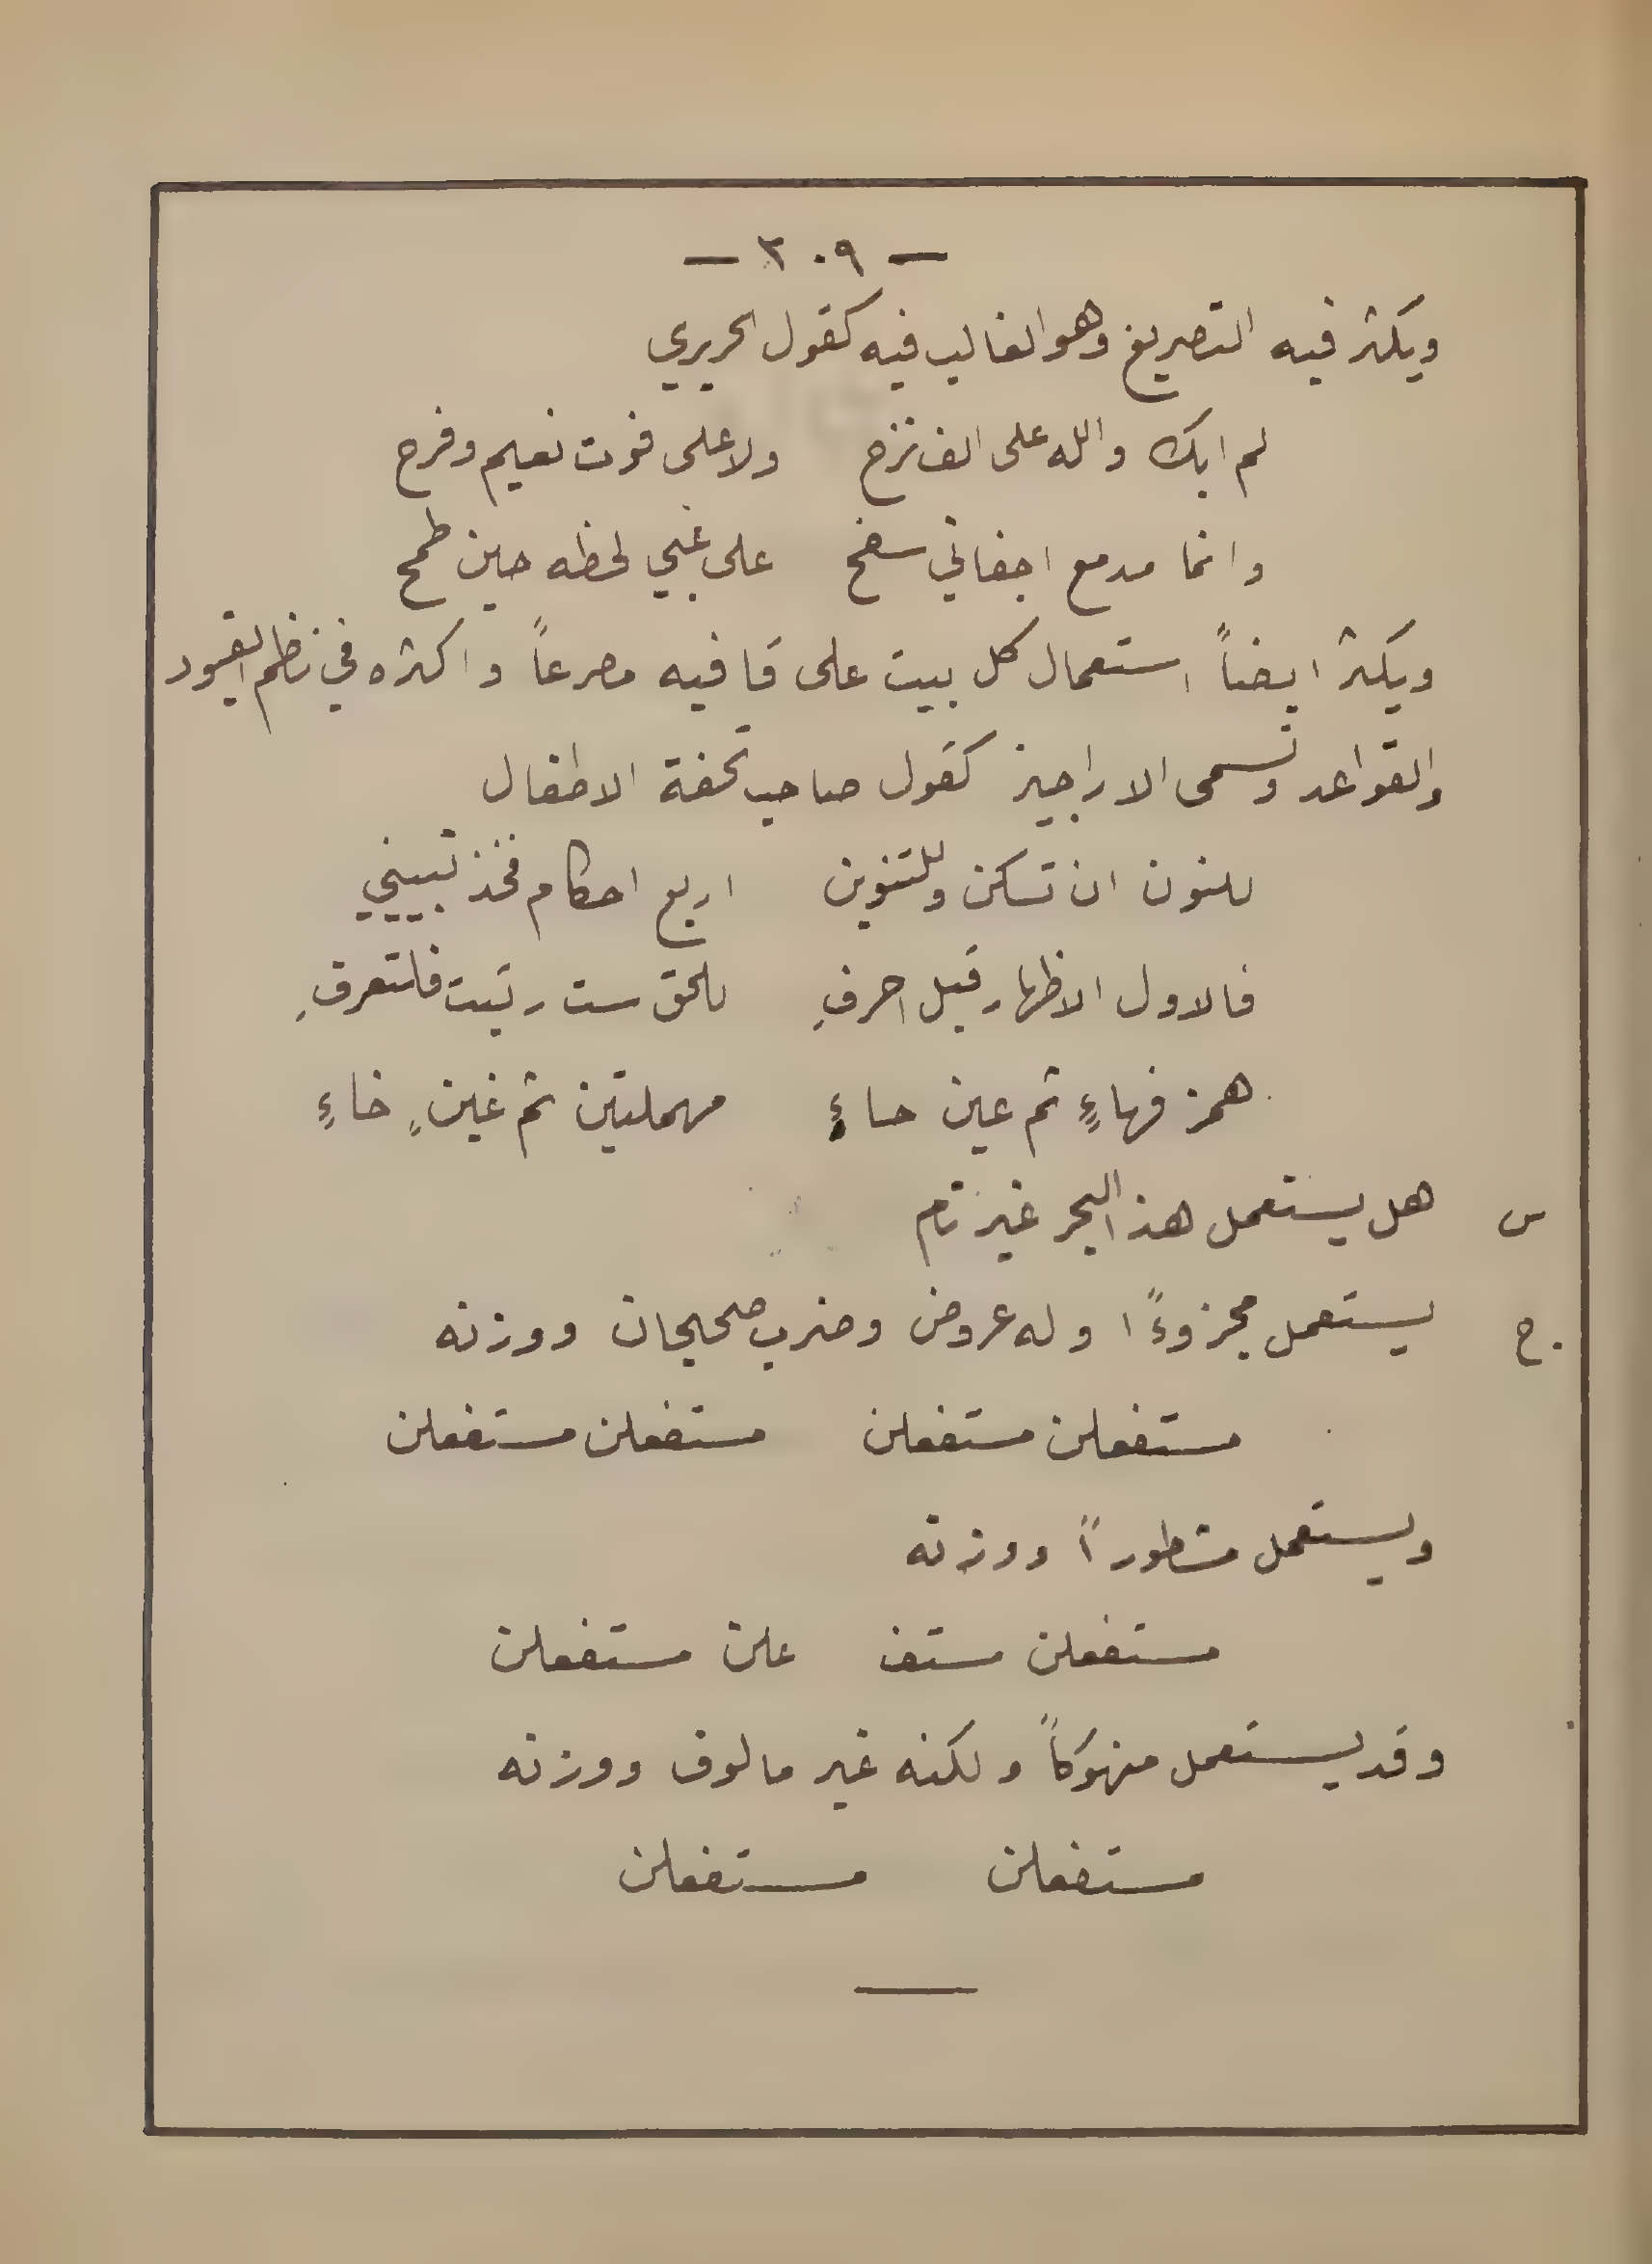 — ٢٠٩ —
ويكثر فيه التصريع وهو الغالب فيه كقول الحريري
لم ابك والله على الف نزح ولا على فوت نعيم وفرح
وانما مدمع اجفاني سفح على غبي لحظه حين طمح
ويكثر ايضاً استعمال كل بيت على قافيه مصرعاً واكثره في نظم القيود
والقواعد وتسمى الاراجيز كقول صاحب تحفة الاطفال
للنون ان تسكن وللتنوين اربع احكام فخذ تبييني
فالاول الاظهار قبل احرفِ للحق ست رتبت فلتعرفِ
همز فهاءٍ ثم عين حاءٍ مهملتين ثم غينٍ خاءٍ
س هل يستعمل هذا البحر غير تام
ج يستعمل مجزوءًا وله عروض وضرب صحيحان ووزنه
مستفعلن مستفعلن مستفعلن مستفعلن
ويستعمل مشطوراً ووزنه
مستفعلن مستف علن مستفعلن
وقد يستعمل منهوكاً ولكنه غير مالوف ووزنه
مستفعلن مستفعلن